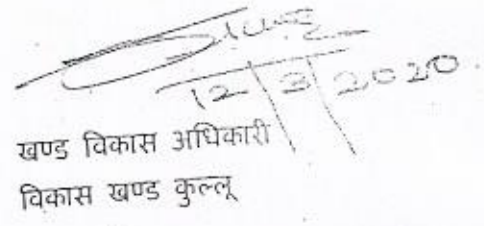 12/3/2020.
खण्ड विकास अधिकारी
विकास खण्ड कुल्लू